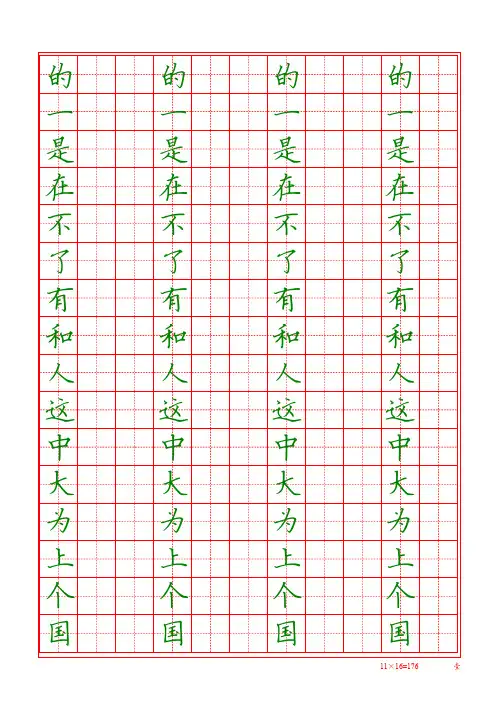 的 的 的 的
一 一 一 一
是 是 是 是
在 在 在 在
不 不 不 不
了 了 了 了
有 有 有 有
和 和 和 和
人 人 人 人
这 这 这 这
中 中 中 中
大 大 大 大
为 为 为 为
上 上 上 上
个 个 个 个
国 国 国 国
11×16=176 壹